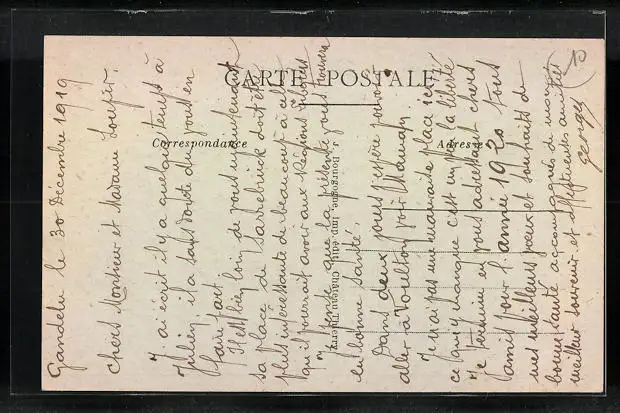 CARTE POSTALE
Correspondance
Adresse
J. Bourgogne, Imp.-édit., Château-Thierry
10
Gandelu le 30 Décembre 1919
Chers Monsieur et Madame Loupir.
J'ai écrit il y a quelque temps à
Julien, il a sans doute dû vous en
faire part.
Il est bien loin de vous maintenant
sa place de Sarrebrück doit être
plus intéressante de beaucoup à celle
qu'il pourrait avoir aux Régions
Je pense que la présente vous trouvera
en bonne santé.
Dans deux jours j'espère pouvoir
aller à Voulton voir Maman
Je n'ai pas une mauvaise place ici
ce qui y manque c'est un peu la liberté
Je termine en vous adressant chers
amis pour l'année 1920 tous
mes meilleurs vœux et souhaits de
bonne santé accompagnés de mon
meilleur souvenir et affectueuses amitiés
Georges